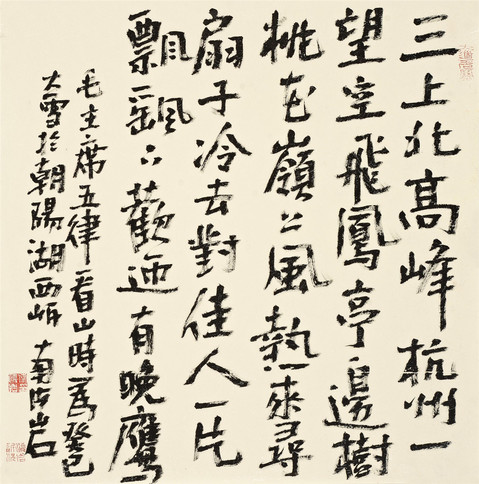 三上北高峰杭州一
望空飛鳳亭邊樹
桃花嶺上風熱来尋
扇子冷去對佳人一片
飄飖下歡迎有晚鷹
毛主席五律看山時為癸巳
大雪於朝陽湖西岸 南海岩